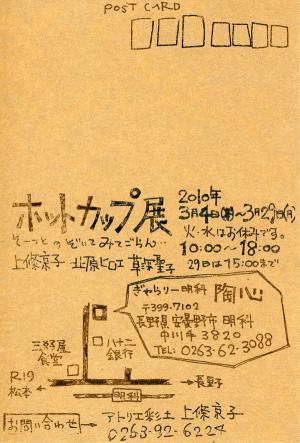 POST CARD
ホットカップ展
2010年
3月4日(木)〜3月29日(月)
そーっと のぞいて みてごらん・・
火・水はお休みです。
10:00〜18:00
上條京子 北原ヒロエ 草深聖子
29日は15:00まで
ぎゃらりー明科 陶心
〒399-7102
長野県安曇野市 明科
中川手3820
TEL: 0263-62-3088
三好屋
食堂
八十二
銀行
R19
松本
長野
明科
お問い合わせ
アトリエ彩土 上條京子
0263-92-6224